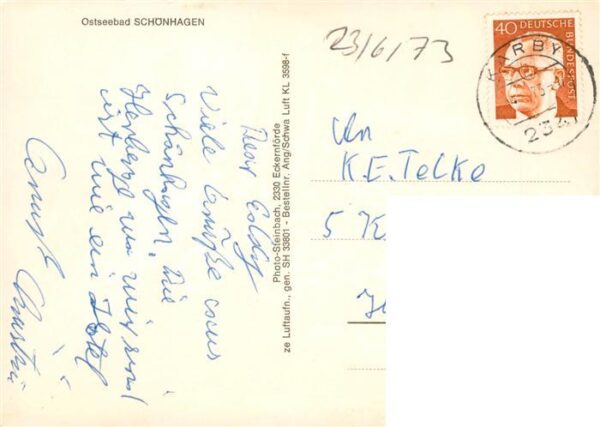 Ostseebad SCHÖNHAGEN
23/6/73
40 DEUTSCHE BUNDESPOST
KARBY
2341
Photo-Steinbach, 2330 Eckernförde
ze Luftaufn., gen. SH 33801 - Bestellnr. Ang/Schwa Luft KL 3598-f
Dear Eddy
Viele Grüße aus
Schönhagen. Die
Herberge wo wir sind
ist wie ein Hotel
An
K.E. Telke
5 K